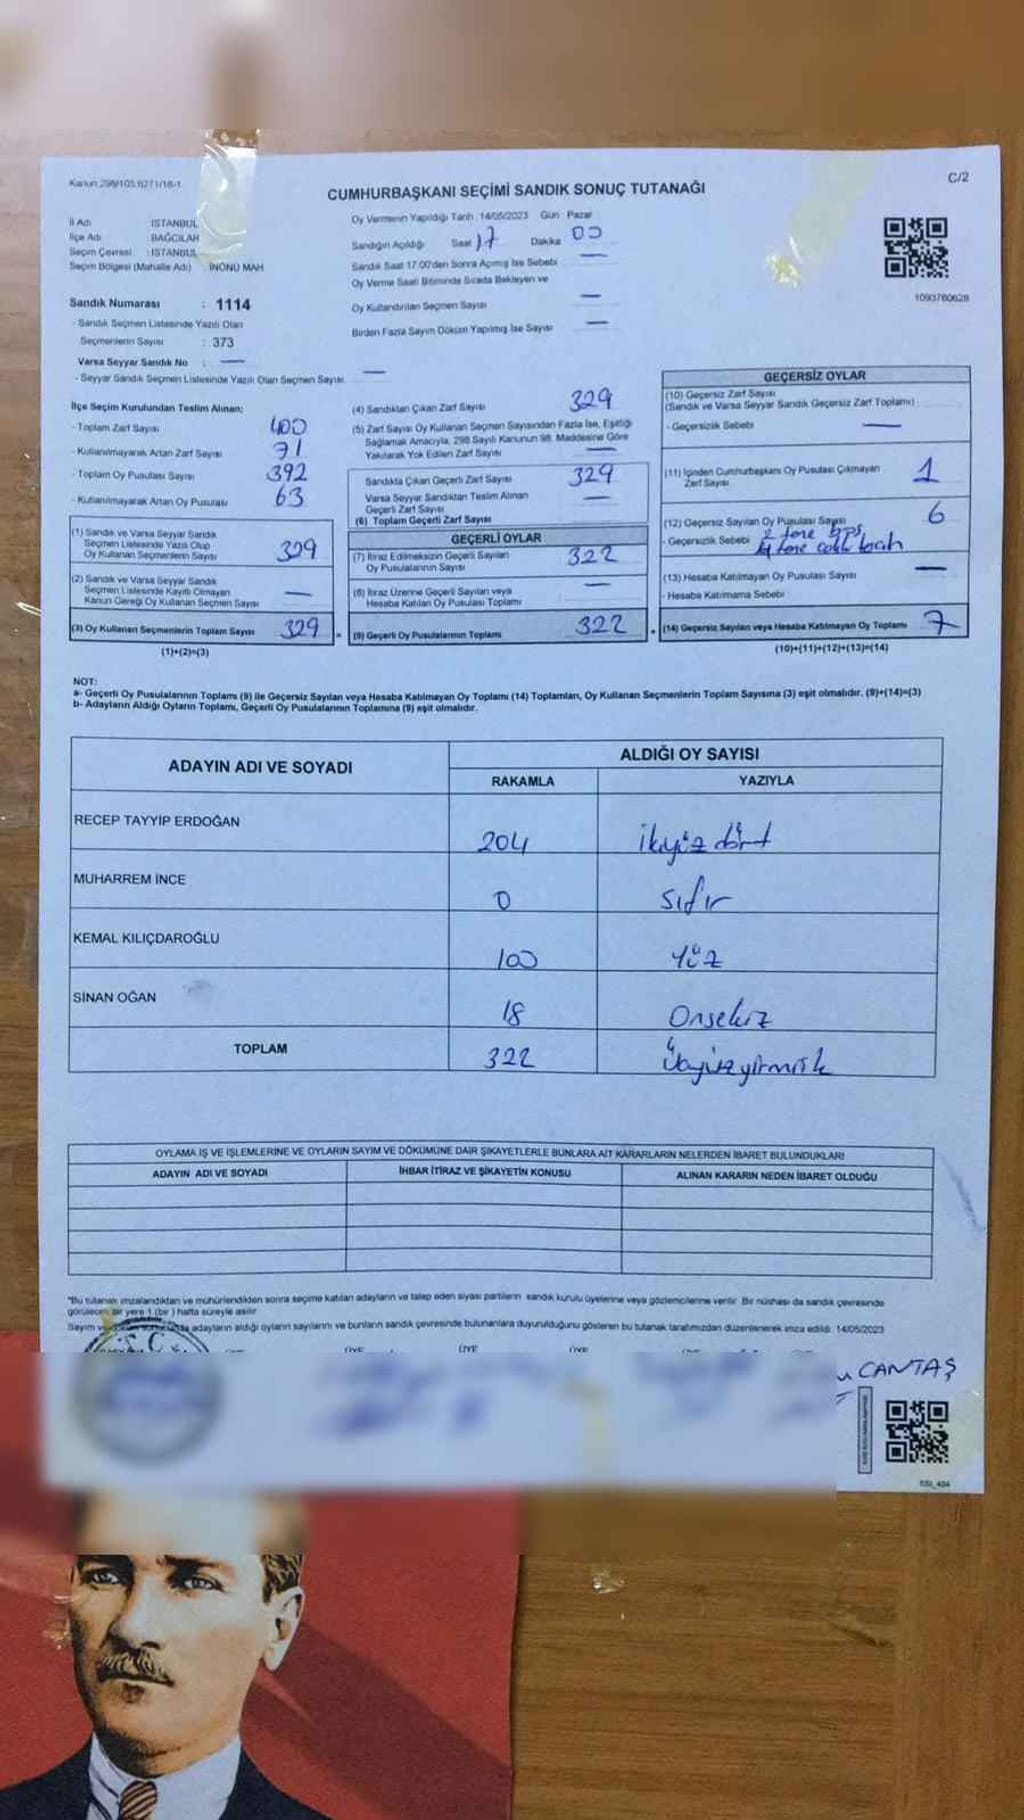 Kanun:298/105;6271/18-1
C/2
CUMHURBAŞKANI SEÇİMİ SANDIK SONUÇ TUTANAĞI
İl Adı : İSTANBUL
İlçe Adı : BAĞCILAR
Seçim Çevresi : İSTANBUL
Seçim Bölgesi (Mahalle Adı) : İNÖNÜ MAH
Sandık Numarası : 1114
- Sandık Seçmen Listesinde Yazılı Olan
Seçmenlerin Sayısı : 373
Varsa Seyyar Sandık No : —
- Seyyar Sandık Seçmen Listesinde Yazılı Olan Seçmen Sayısı —
Oy Vermenin Yapıldığı Tarih : 14/05/2023 Gün : Pazar
Sandığın Açıldığı Saat 17 Dakika 00
Sandık Saat 17:00'den Sonra Açılmış İse Sebebi —
Oy Verme Saati Bitiminde Sırada Bekleyen ve
Oy Kullandırılan Seçmen Sayısı —
Birden Fazla Sayım Döküm Yapılmış İse Sayısı —
1093780628
İlçe Seçim Kurulundan Teslim Alınan;
- Toplam Zarf Sayısı 400
- Kullanılmayarak Artan Zarf Sayısı 71
- Toplam Oy Pusulası Sayısı 392
- Kullanılmayarak Artan Oy Pusulası 63
(1) Sandık ve Varsa Seyyar Sandık
Seçmen Listesinde Yazılı Olup
Oy Kullanan Seçmenlerin Sayısı 329
(2) Sandık ve Varsa Seyyar Sandık
Seçmen Listesinde Kayıtlı Olmayan
Kanun Gereği Oy Kullanan Seçmen Sayısı —
(3) Oy Kullanan Seçmenlerin Toplam Sayısı 329
(1)+(2)=(3)
(4) Sandıktan Çıkan Zarf Sayısı 329
(5) Zarf Sayısı Oy Kullanan Seçmen Sayısından Fazla İse, Eşitliği
Sağlamak Amacıyla, 298 Sayılı Kanunun 98. Maddesine Göre
Yakılarak Yok Edilen Zarf Sayısı —
Sandıkta Çıkan Geçerli Zarf Sayısı 329
Varsa Seyyar Sandıktan Teslim Alınan
Geçerli Zarf Sayısı —
(6) Toplam Geçerli Zarf Sayısı
GEÇERLİ OYLAR
(7) İtiraz Edilmeksizin Geçerli Sayılan
Oy Pusulalarının Sayısı 322
(8) İtiraz Üzerine Geçerli Sayılan veya
Hesaba Katılan Oy Pusulası Toplamı —
(9) Geçerli Oy Pusulalarının Toplamı 322
GEÇERSİZ OYLAR
(10) Geçersiz Zarf Sayısı
(Sandık ve Varsa Seyyar Sandık Geçersiz Zarf Toplamı)
- Geçersizlik Sebebi —
(11) İçinden Cumhurbaşkanı Oy Pusulası Çıkmayan
Zarf Sayısı 1
(12) Geçersiz Sayılan Oy Pusulası Sayısı 6
- Geçersizlik Sebebi 2 tane
4 tane
(13) Hesaba Katılmayan Oy Pusulası Sayısı —
- Hesaba Katılmama Sebebi
(14) Geçersiz Sayılan veya Hesaba Katılmayan Oy Toplamı 7
(10)+(11)+(12)+(13)=(14)
NOT:
a- Geçerli Oy Pusulalarının Toplamı (9) ile Geçersiz Sayılan veya Hesaba Katılmayan Oy Toplamı (14) Toplamları, Oy Kullanan Seçmenlerin Toplam Sayısına (3) eşit olmalıdır. (9)+(14)=(3)
b- Adayların Aldığı Oyların Toplamı, Geçerli Oy Pusulalarının Toplamına (9) eşit olmalıdır.
ADAYIN ADI VE SOYADI
ALDIĞI OY SAYISI
RAKAMLA YAZIYLA
RECEP TAYYİP ERDOĞAN 204 ikiyüz dört
MUHARREM İNCE 0 sıfır
KEMAL KILIÇDAROĞLU 100 Yüz
SİNAN OĞAN 18 Onsekiz
TOPLAM 322 Üçyüzyirmiik
OYLAMA İŞ VE İŞLEMLERİNE VE OYLARIN SAYIM VE DÖKÜMÜNE DAİR ŞİKAYETLERLE BUNLARA AİT KARARLARIN NELERDEN İBARET BULUNDUKLARI
ADAYIN ADI VE SOYADI İHBAR İTİRAZ VE ŞİKAYETİN KONUSU ALINAN KARARIN NEDEN İBARET OLDUĞU
"Bu tutanak imzalandıktan ve mühürlendikten sonra seçime katılan adayların ve talep eden siyasi partilerin sandık kurulu üyelerine veya gözlemcilerine verilir. Bir nüshası da sandık çevresinde
görülecek bir yere 1 (bir) hafta süreyle asılır
Sayım ve adayların aldığı oyların sayılarını ve bunların sandık çevresinde bulunanlara duyurulduğunu gösteren bu tutanak tarafımızdan düzenlenerek imza edildi. 14/05/2023
T.C.
ÜYE ÜYE ÜYE
CANTAŞ